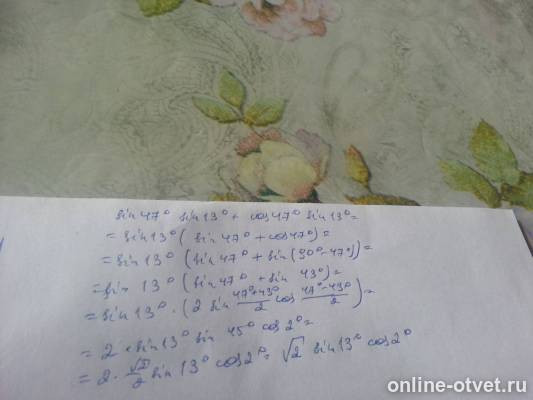 sin 47° sin 13° + cos 47° sin 13° =
= sin 13° ( sin 47° + cos 47°) =
= sin 13° (sin 47° + sin (90° - 47°)) =
= sin 13° (sin 47° + sin 43°) =
= sin 13° · (2 sin (47°+43°)/2 cos (47°-43°)/2) =
= 2 · sin 13° sin 45° cos 2° =
= 2 · √2/2 sin 13° cos 2° = √2 sin 13° cos 2°
online-otvet.ru